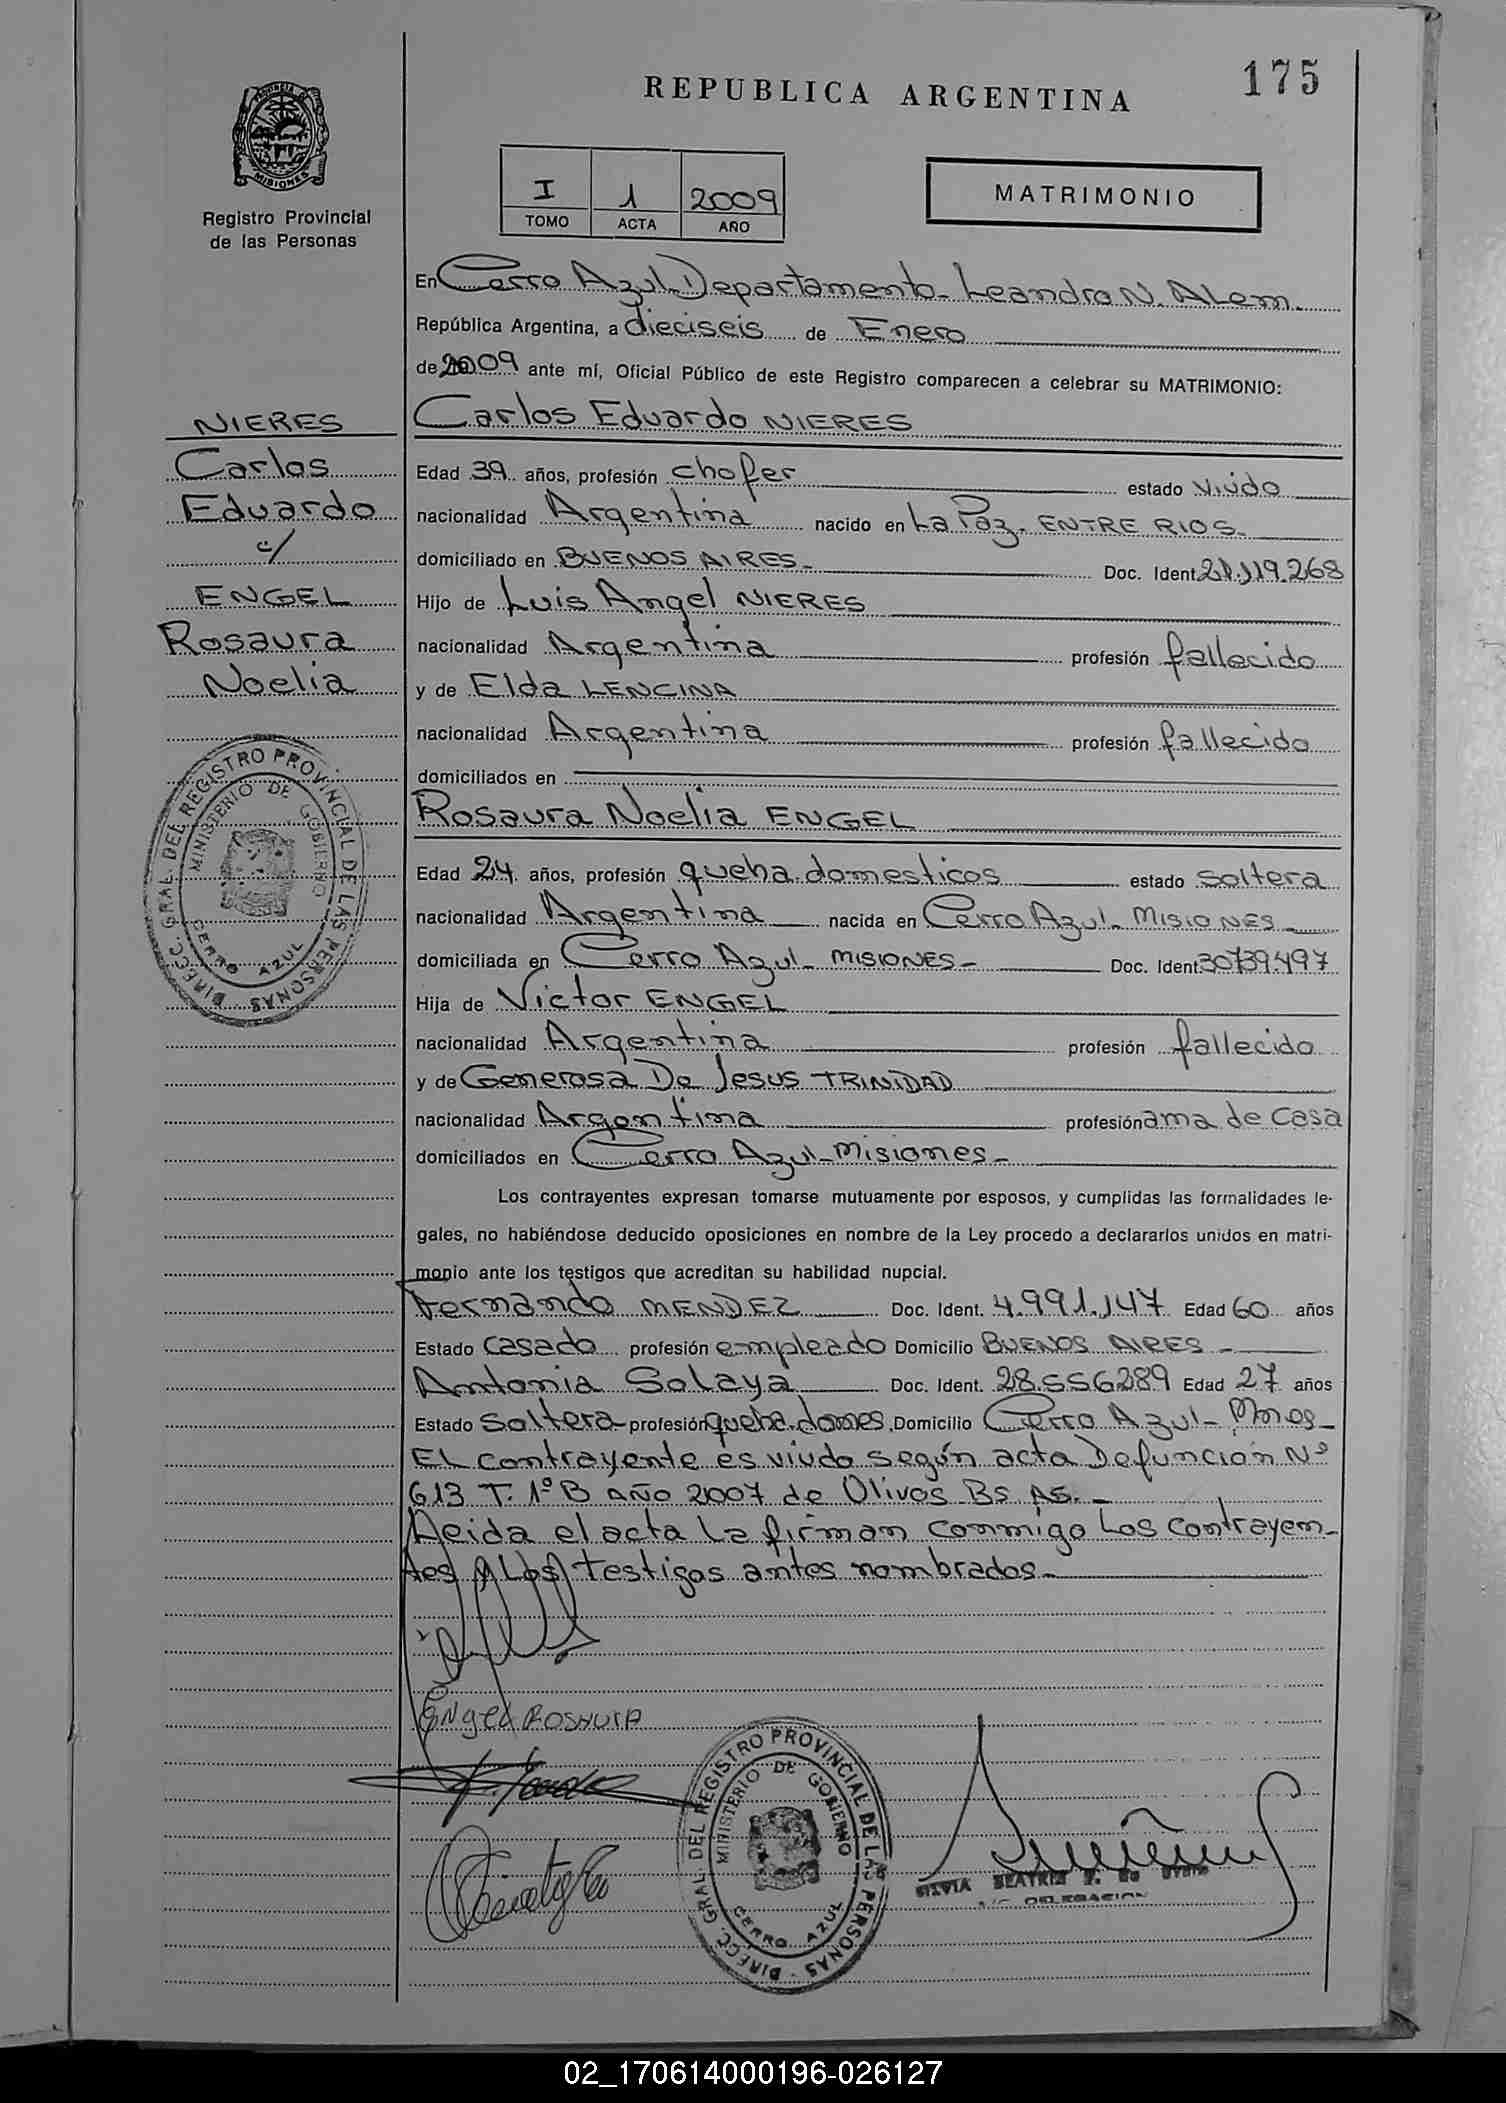 175
REPUBLICA ARGENTINA
PROVINCIA DE
MISIONES
Registro Provincial
de las Personas
I 1 2009
TOMO ACTA AÑO
MATRIMONIO
En Cerro Azul Departamento Leandro N. Alem.
República Argentina, a dieciseis de Enero
de 2009 ante mí, Oficial Público de este Registro comparecen a celebrar su MATRIMONIO:
Carlos Eduardo NIERES
NIERES
Carlos
Eduardo
c/
ENGEL
Rosaura
Noelia
Edad 39 años, profesión chofer estado viudo
nacionalidad Argentina nacido en La Paz. ENTRE RIOS
domiciliado en BUENOS AIRES Doc. Ident. 21.119.268
Hijo de Luis Angel NIERES
nacionalidad Argentina profesión fallecido
y de Elda LENCINA
nacionalidad Argentina profesión fallecido
domiciliados en
Rosaura Noelia ENGEL
Edad 24 años, profesión queha.domesticos estado soltera
nacionalidad Argentina nacida en Cerro Azul MISIONES
domiciliada en Cerro Azul MISIONES Doc. Ident. 30739.497
Hija de Victor ENGEL
nacionalidad Argentina profesión fallecido
y de Generosa De Jesus TRINIDAD
nacionalidad Argentina profesión ama de casa
domiciliados en Cerro Azul Misiones
Los contrayentes expresan tomarse mutuamente por esposos, y cumplidas las formalidades le-
gales, no habiéndose deducido oposiciones en nombre de la Ley procedo a declararlos unidos en matri-
monio ante los testigos que acreditan su habilidad nupcial.
Fernando MENDEZ Doc. Ident. 4.991.147 Edad 60 años
Estado casado profesión empleado Domicilio BUENOS AIRES
Antonia Solaya Doc. Ident. 28.556289 Edad 27 años
Estado soltera profesión queha.domes. Domicilio Cerro Azul Mnes
El contrayente es viudo según acta Defunción Nº
613 T. 1º B año 2007 de Olivos Bs As.
Leida el acta la firman conmigo los contrayen-
tes y los testigos antes nombrados
Engel Rosaura
DIRECC. GRAL. DEL REGISTRO PROVINCIAL DE LAS PERSONAS
MINISTERIO DE GOBIERNO
CERRO AZUL
DIRECC. GRAL. DEL REGISTRO PROVINCIAL DE LAS PERSONAS
MINISTERIO DE GOBIERNO
CERRO AZUL
SILVIA BEATRIZ
DELEGACION
02_170614000196-026127